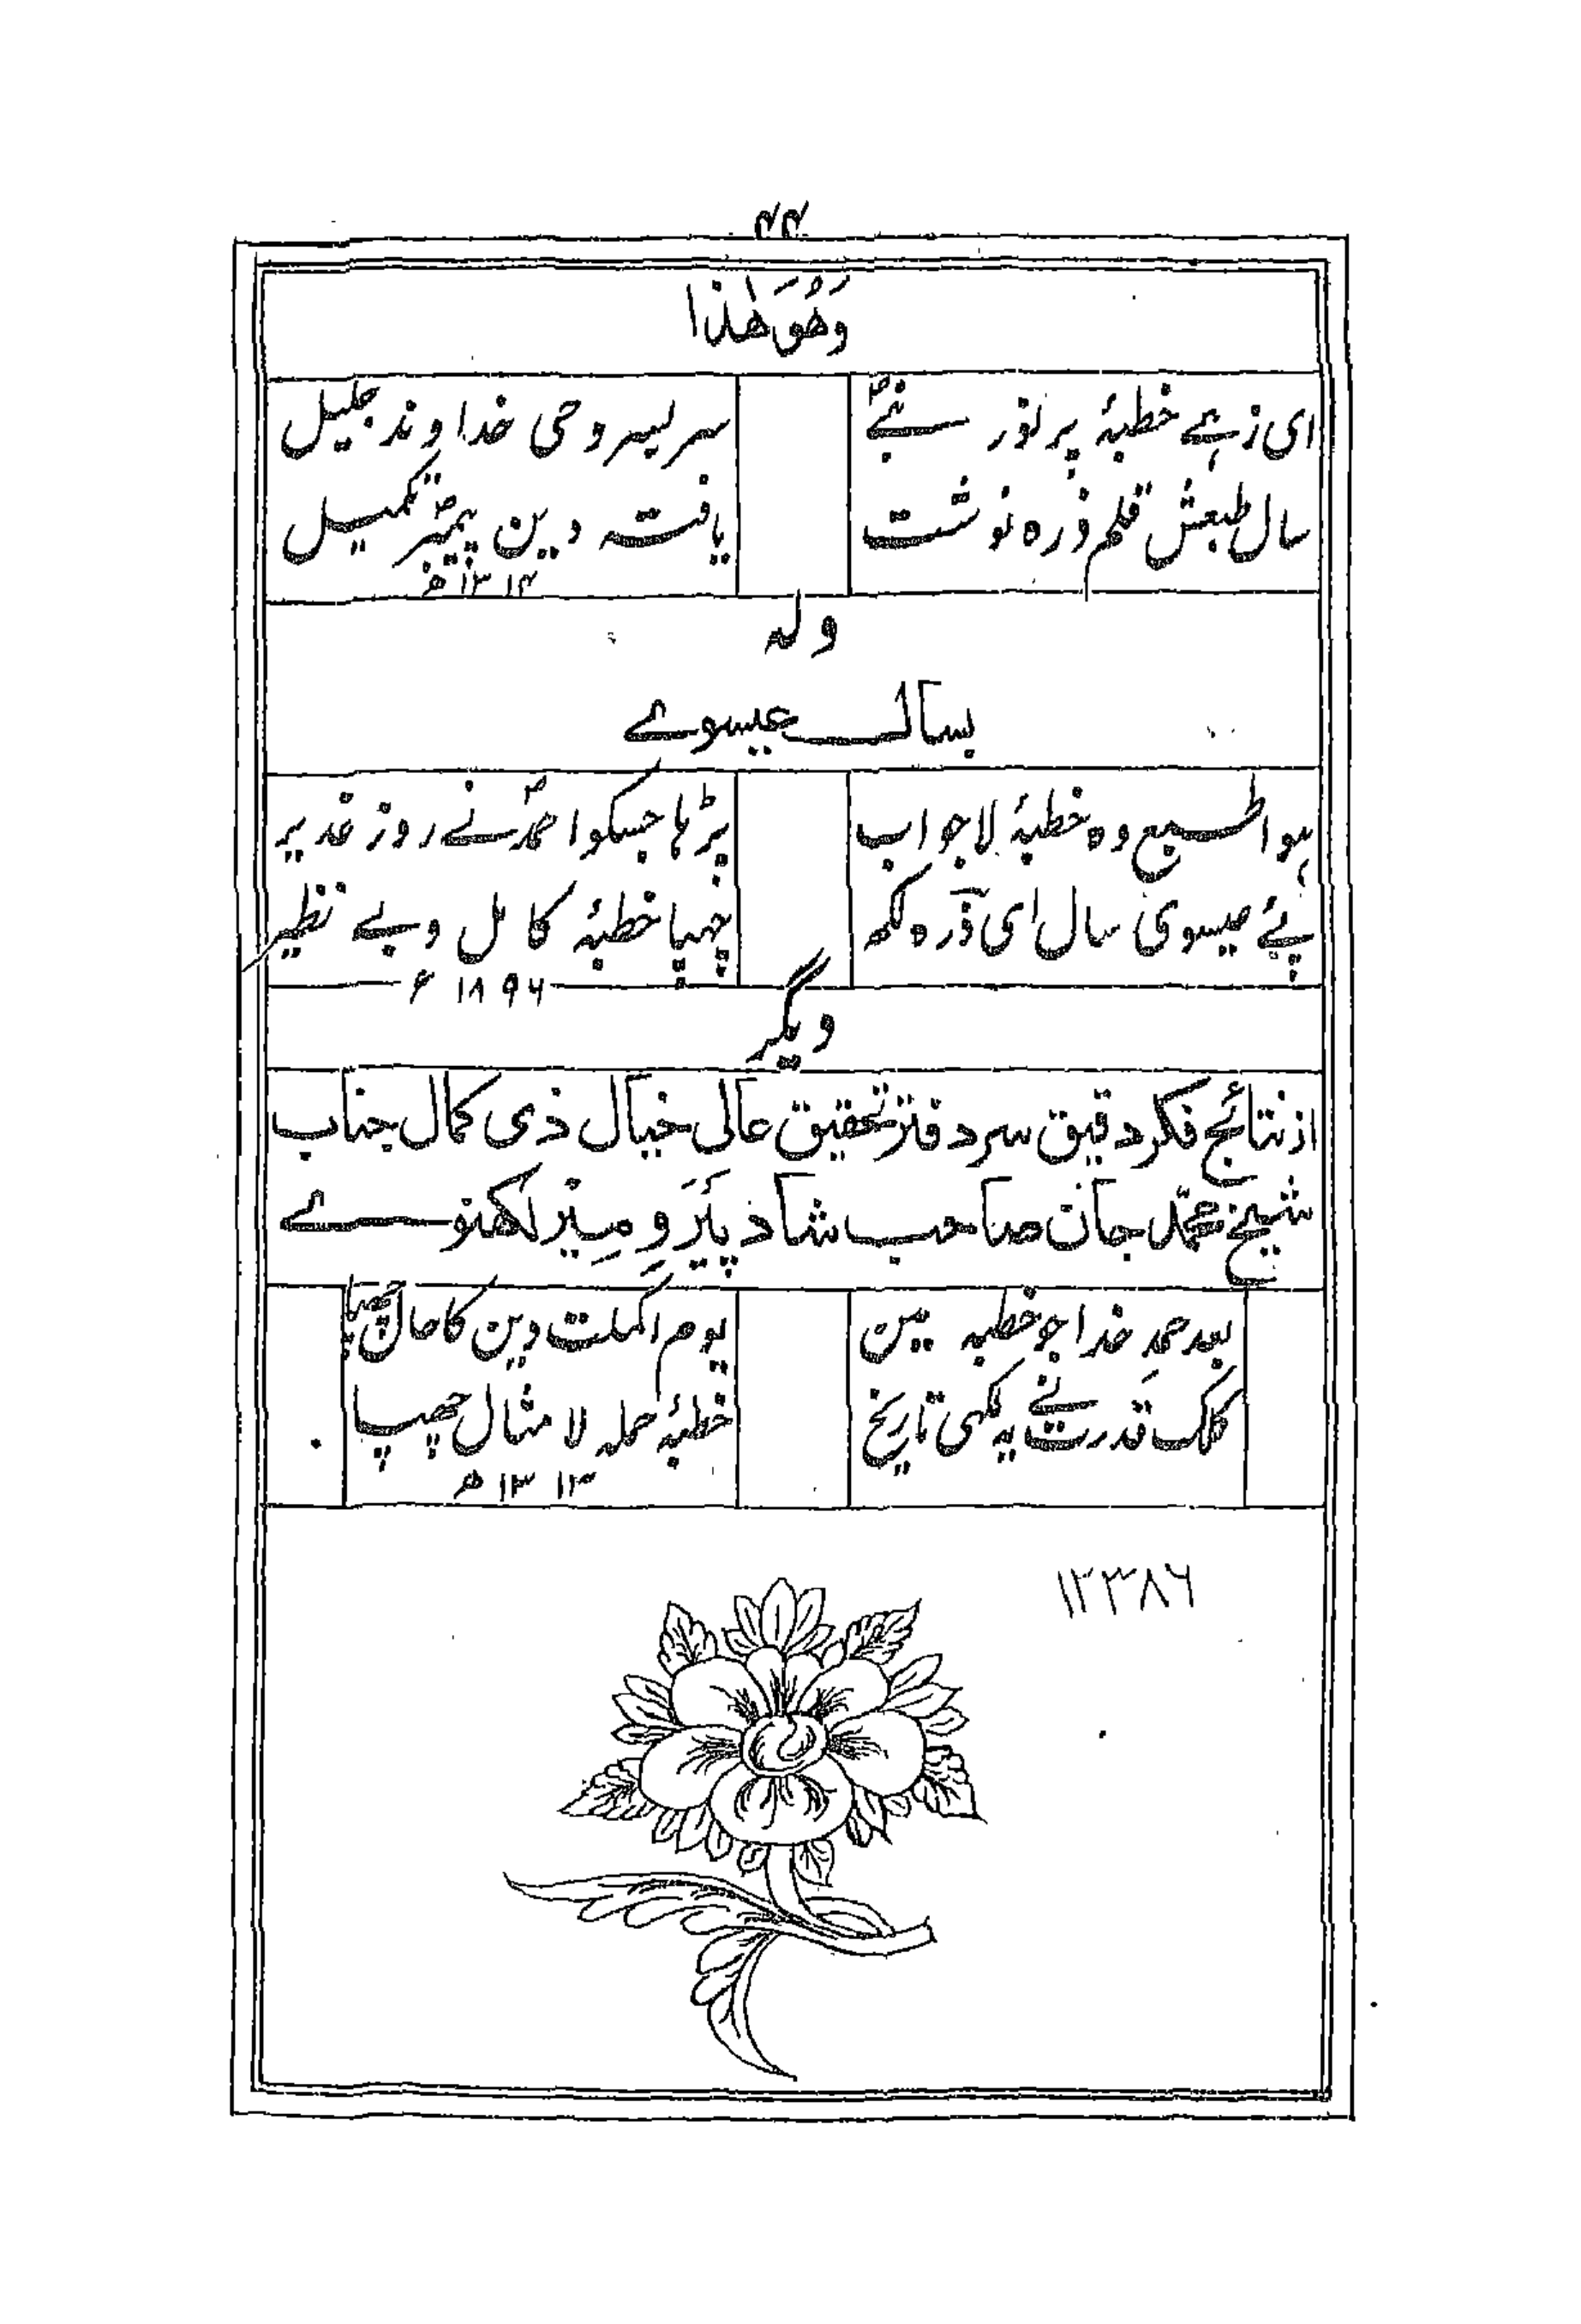 ۴۴
وَهُوَ هٰذَا
ای زہے خطبۂ پر نور نبیؐ سر بسر وحی خداوند جلیل
سال طبعش قلم ذرہ نوشت یافتہ دین پیمبرؐ تکمیل
۱۳۱۴ھ
ولہ
بسال عیسوے
ہوا طبع وہ خطبۂ لاجواب پڑہا جسکو احمدؐ نے روز غدیر
پئے عیسوی سال ای ذرہ لکھ چھپا خطبۂ کامل و بے نظیر
۱۸۹۶ء
دیگر
از نتائج فکر دقیق سر دفتر تحقیق عالی خیال ذی کمال جناب
شیخ محمّد جان صاحب شاد پَیَروِ مِیر لکھنوے
بعد حمدِ خدا جو خطبہ مین یوم اکملت دین کا حال چھپا
کلک قدرت نے یہ لکھی تاریخ خطبۂ حملہ لا مثال چھپا
۱۳۱۳ھ
۱۲۳۸۶